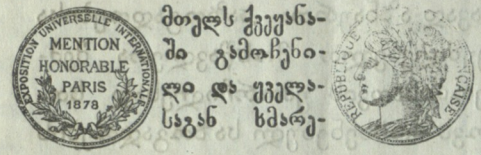 EXPOSITION UNIVERSELLE INTERNATIONALE
MENTION
HONORABLE
PARIS
1878
მთელს ქვეყანა-
ში გამოჩენი-
ლი და ყველა-
საგან ხმარე-
REPUBLIQUE FRANÇAISE